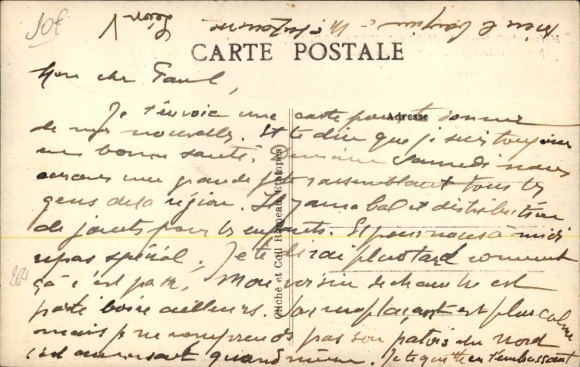 10f
CARTE POSTALE
Adresse
Cliché et Coll Rameau Etaples
Mon cher Paul,
Je t'envoie une carte pour te donner
de mes nouvelles. Et te dire que je suis toujours
en bonne santé. Demain samedi nous
aurons une grande fête rassemblant tous les
gens de la région. Il y aura bal et distribution
de jouets pour les enfants. Et pour nous à midi
repas spécial. Je te dirai plus tard comment
ça s'est passé. Mon voisin de chambre est
parti boire ailleurs. Son remplaçant est plus calme
mais je ne comprends pas son patois du Nord
c'est amusant quand même. Je te quitte en t'embrassant